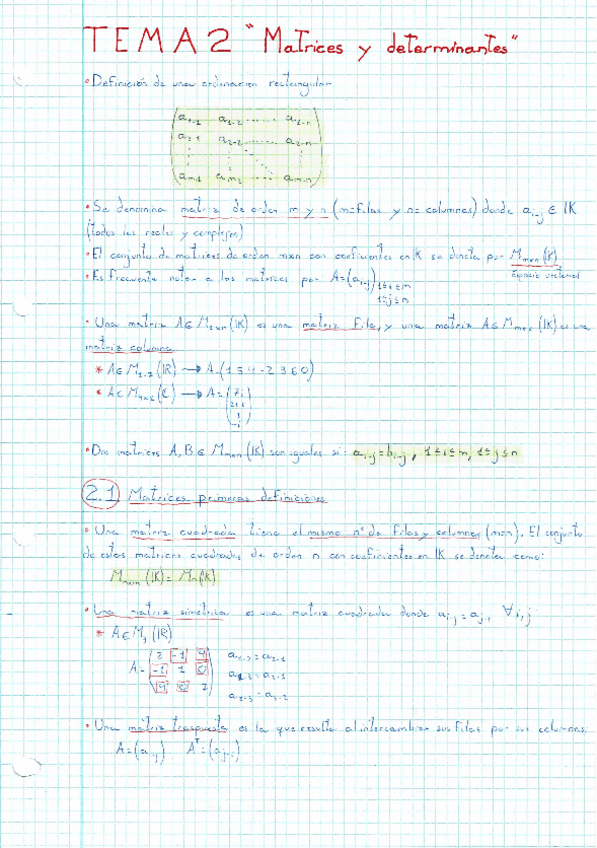 TEMA 2 "Matrices y determinantes"
• Definición de una ordenación rectangular
a₁₋₁ a₁₋₂ ...... a₁₋ₙ
a₂₋₁ a₂₋₂ ...... a₂₋ₙ
aₘ₋₁ aₘ₋₂ ... aₘ₋ₙ
• Se denomina matriz de orden m y n (m=filas y n= columnas) donde aᵢ₋ⱼ ∈ IK
(todos los reales y complejos)
• El conjunto de matrices de orden mxn con coeficientes en K se denota por Mₘₓₙ(K)
espacio vectorial
• Es frecuente notar a las matrices por A=(aᵢ₋ⱼ) 1≤i≤m
1≤j≤n
• Una matriz A∈M₁ₓₙ(IK) es una matriz fila, y una matriz A∈Mₘₓ₁(IK) es una
matriz columna
* A∈M₁ₓ₇(IR) → A=(1 5 4 -2 3 6 0)
* A∈M₄ₓ₁(C) → A=
• Dos matrices A, B ∈ Mₘₓₙ(IK) son iguales si: aᵢ₋ⱼ=bᵢ₋ⱼ, 1≤i≤m, 1≤j≤n
2.1 Matrices primeras definiciones
• Una matriz cuadrada tiene el mismo nº de filas y columnas (m=n). El conjunto
de estas matrices cuadradas de orden n con coeficientes en IK se denota como:
Mₙₓₙ(IK)= Mₙ(K)
• Una matriz simétrica es una matriz cuadrada donde aᵢ₋ⱼ=aⱼ₋ᵢ ∀i,j
* A∈M₃(IR)
2 -1 9 a₁₋₂=a₂₋₁
A= -1 1 0 a₁₋₃=a₃₋₁
9 0 7 a₂₋₃=a₃₋₂
• Una matriz traspuesta es la que resulta al intercambiar sus filas por sus columnas.
A=(aᵢ₋ⱼ) Aᵀ=(aⱼ₋ᵢ)